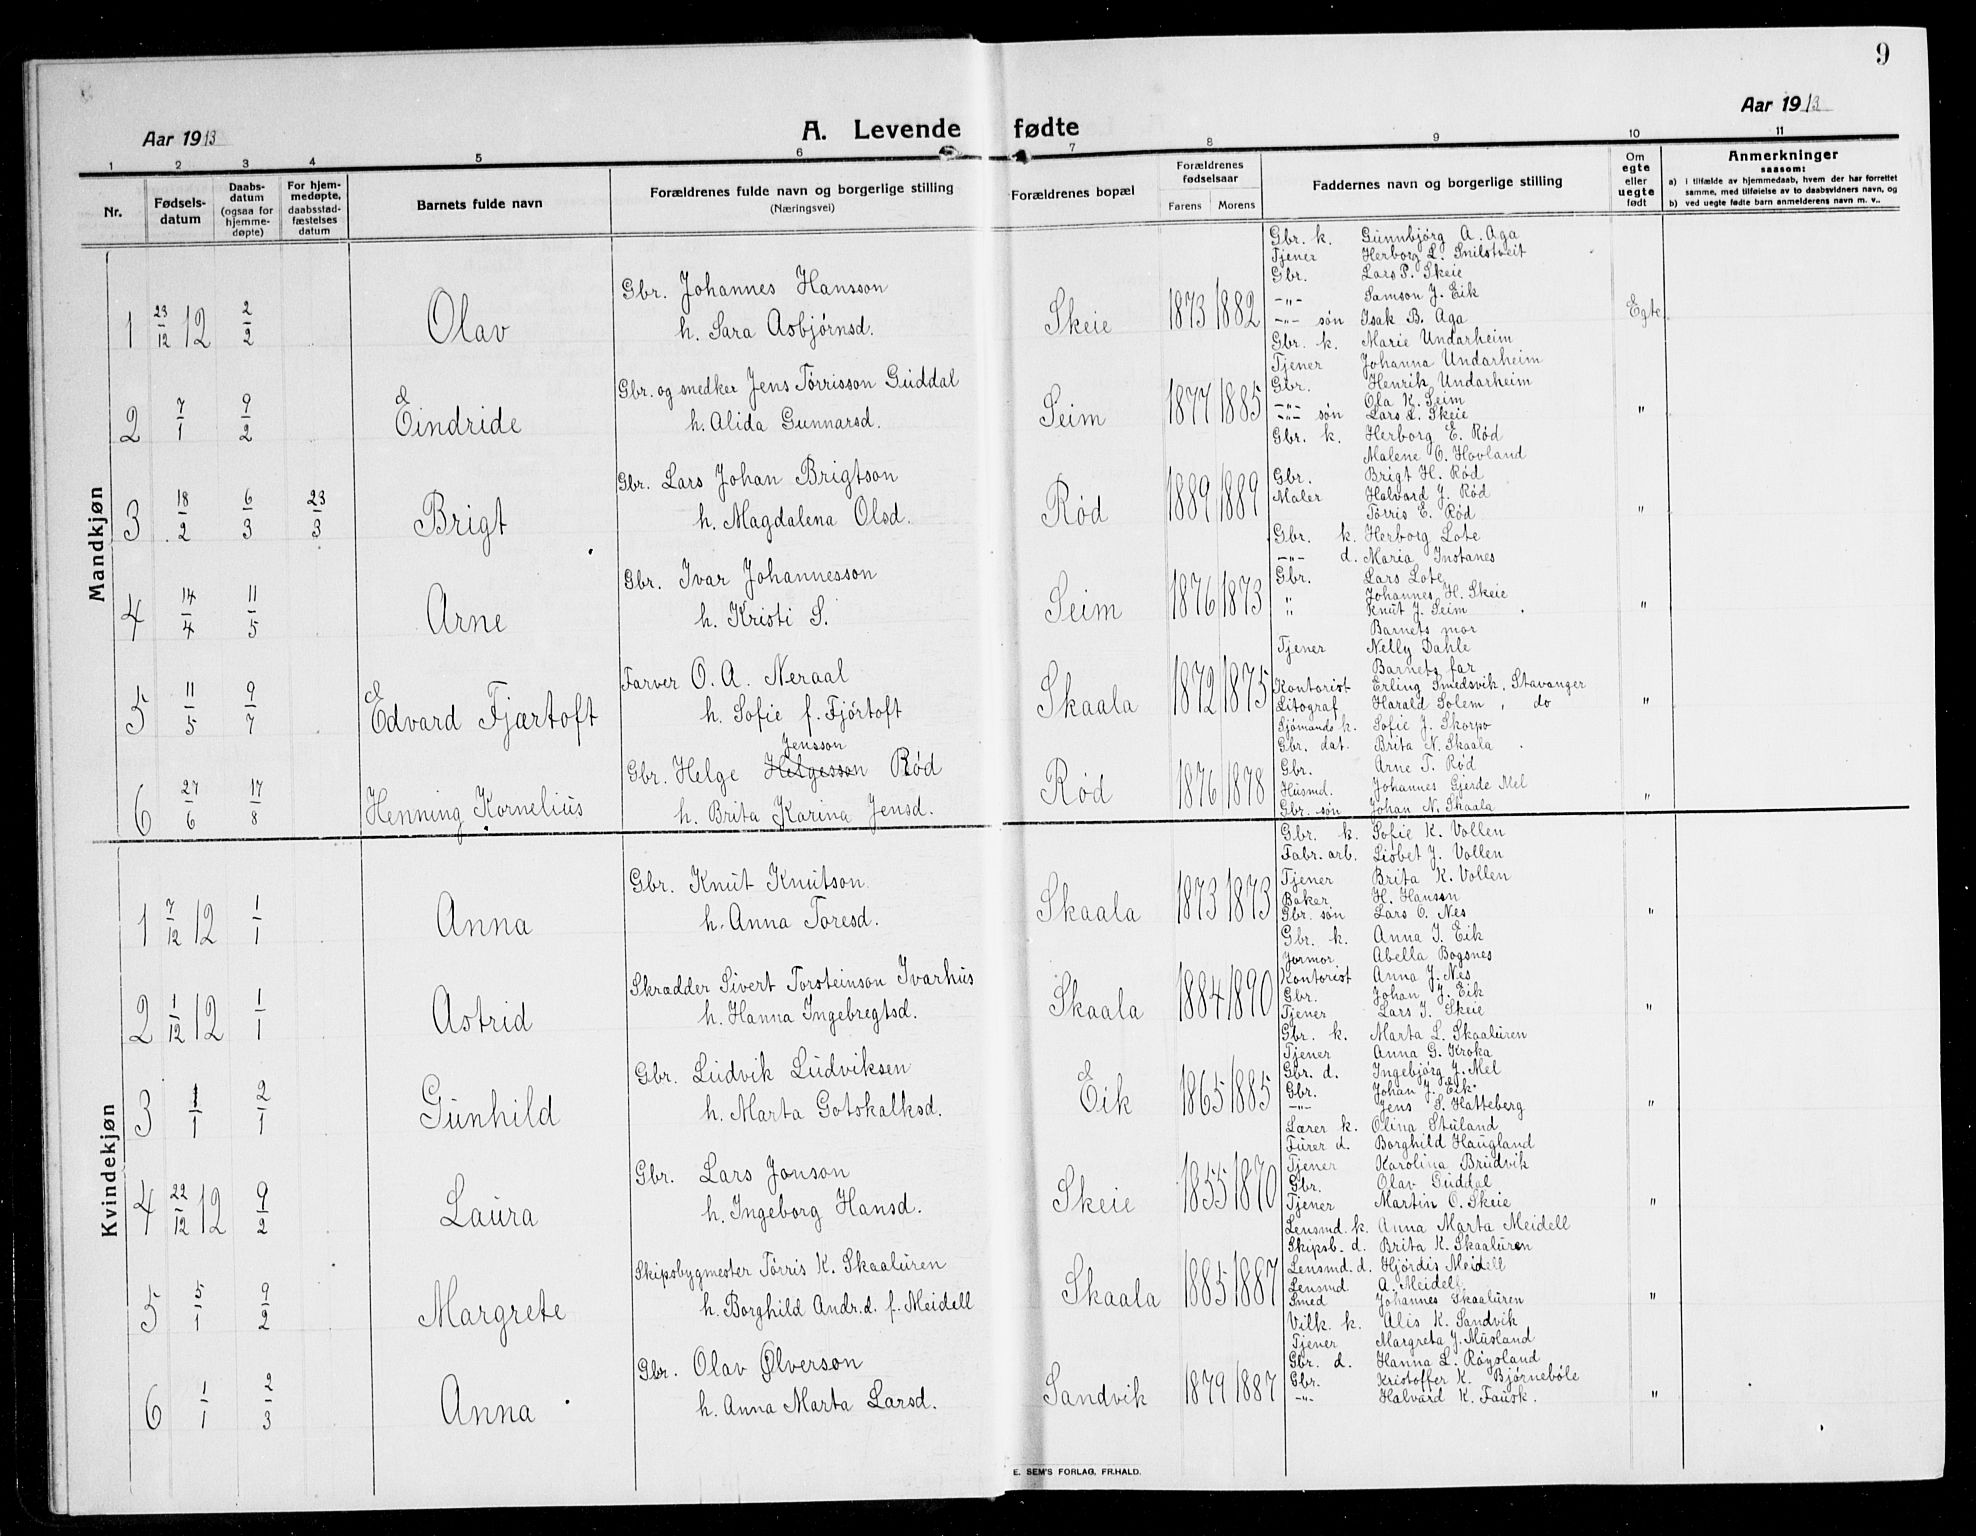 9
Aar 1913
A. Levende fødte
Aar 1913
1 2 3 4 5 6 7 8 9 10 11
Nr.
Fødsels-
datum
Daabs-
datum
(ogsaa for
hjemme-
døpte)
For hjem-
medøpte,
daabsstad-
fæstelses
datum
Barnets fulde navn
Forældrenes fulde navn og borgerlige stilling
(Næringsvei)
Forældrenes bopæl
Forældrenes
fødselsaar
Farens Morens
Faddernes navn og borgerlige stilling
Om
egte
eller
uegte
født
Anmerkninger
saasom:
a) i tilfælde av hjemmedaab, hvem der har forrettet
samme, med tilføielse av to daabsvidners navn, og
b) ved uegte fødte barn anmelderens navn m. v..
Mandkjøn
1 23/12 12 2/2 Olav
Gbr. Johannes Hansson
h. Sara Asbjørnsd.
Skeie 1873 1882
Gbr. k. Gunnbjørg A. Aga
Tjener Herborg L. Snilstveit
Gbr. Lars P. Skeie
-"- Samson J. Eik
-"- søn Isak B. Aga
Egte
2 7/1 9/2 Eindride
Gbr. og snedker Jens Tørrisson Guddal
h. Alida Gunnarsd.
Seim 1877 1885
Gbr. k. Marie Undarheim
Tjener Johanna Undarheim
Gbr. Henrik Undarheim
-"- Ola K. Seim
-"- søn Lars L. Skeie
"
3 18/2 6/3 23/3 Brigt
Gbr. Lars Johan Brigtson
h. Magdalena Olsd.
Rød 1889 1889
Gbr. k. Herborg E. Rød
Malene O. Hovland
Gbr. Brigt H. Rød
Maler Halvard J. Rød
Tørris E. Rød
"
4 14/4 11/5 Arne
Gbr. Ivar Johannesson
h. Kristi S.
Seim 1876 1873
Gbr. k. Herborg Lote
-"- d. Maria Instanes
Gbr. Lars Lote
" Johannes H. Skeie
" Knut J. Seim
"
5 11/5 9/7 Edvard Fjærtoft
Farver O. A. Neraal
h. Sofie f. Fjørtoft
Skaala 1872 1875
Barnets mor
Tjener Nelly Dahle
Barnets far
Kontorist Erling Smedsvik, Stavanger
Litograf Harald Solem, do
"
6 27/6 17/8 Henning Kornelius
Jensson
Gbr. Helge Helgesson Rød
h. Brita Karina Jensd.
Rød 1876 1878
Sjømands k. Sofie J. Skorpo
Gbr. dat. Brita N. Skaala
Gbr. Arne T. Rød
Husmd. Johannes Gjerde Mel
Gbr. søn Johan N. Skaala
"
Kvindekjøn
1 7/12 12 1/1 Anna
Gbr. Knut Knutson
h. Anna Toresd.
Skaala 1873 1873
Gbr. k. Sofie K. Vollen
Fabr. arb. Lisbet J. Vollen
Tjener Brita K. Vollen
Baker H. Hanson
Gbr. søn Lars O. Nes
"
2 1/12 12 1/1 Astrid
Skrædder Sivert Torsteinson Ivarhus
h. Hanna Ingebregtsd.
Skaala 1884 1890
Gbr. k. Anna I. Eik
Jormor Abella Bogsnes
Kontorist Anna J. Nes
Gbr. Johan J. Eik
Tjener Lars I. Skeie
"
3 1/1 2/1 Gunhild
Gbr. Ludvik Ludviksen
h. Marta Gotskalksd.
Eik 1865 1885
Gbr. k. Marta L. Skaaluren
Tjener Anna G. Kroka
Gbr. d. Ingebjørg J. Mel
Gbr. Johan J. Eik.
-"- Jens S. Hatteberg
"
4 22/12 12 9/2 Laura
Gbr. Lars Jonson
h. Ingeborg Hansd.
Skeie 1855 1870
Lærer k. Olina Stuland
Furer d. Borghild Haugland
Tjener Karolina Brudvik
Gbr. Olav Guddal
Tjener Martin O. Skeie
"
5 5/1 9/2 Margrete
Skipsbygmester Tørris K. Skaaluren
h. Borghild Andr.d. f. Meidell
Skaala 1885 1887
Lensmd. k. Anna Marta Meidell
Skipsb. d. Brita K. Skaaluren
Lensmd. d. Hjørdis Meidell
Lensmd. A. Meidell
Smed Johannes Skaaluren
"
6 1/1 2/3 Anna
Gbr. Olav Ølverson
h. Anna Marta Larsd.
Sandvik 1879 1887
Vilk. k. Alis K. Sandvik
Tjener Margreta J. Musland
Gbr. d. Hanna L. Røysland
Gbr. Kristoffer K. Bjørnebøle
-"- Halvard K. Fausk.
"
E. SEM'S FORLAG, FR.HALD.